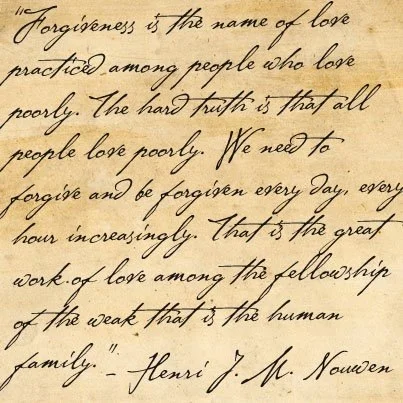 "Forgiveness is the name of love
practiced among people who love
poorly. The hard truth is that all
people love poorly. We need to
forgive and be forgiven every day, every
hour increasingly. That is the great
work of love among the fellowship
of the weak that is the human
family." - Henri J. M. Nouwen